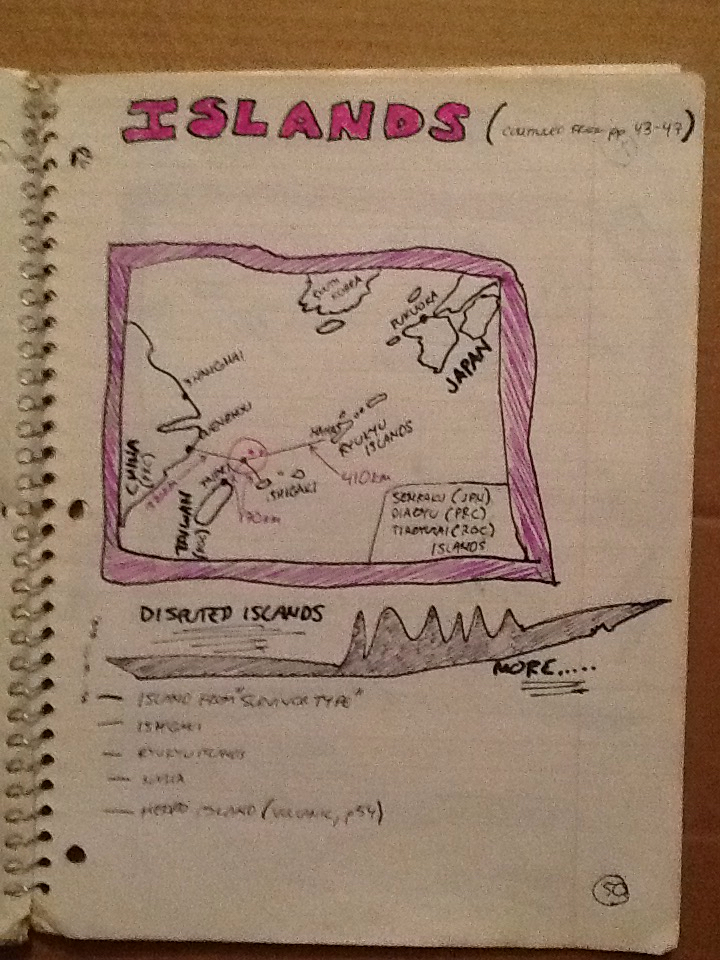 ISLANDS (CONTINUED FROM pp. 43-47)
SOUTH
KOREA
FUKUOKA
JAPAN
SHANGHAI
WENZHOU
NAHA
RYUKYU
ISLANDS
CHINA
(PRC)
TAIPEI
ISHIGAKI
410km
170km
TAIWAN
(ROC)
SENKAKU (JPN)
DIAOYU (PRC)
TIAOYUTAI (ROC)
ISLANDS
DISPUTED ISLANDS
MORE.....
— ISLAND FROM "SURVIVOR TYPE"
— ISHIGAKI
— RYUKYU ISLANDS
— ISLAND (VOLCANIC, p54)
50